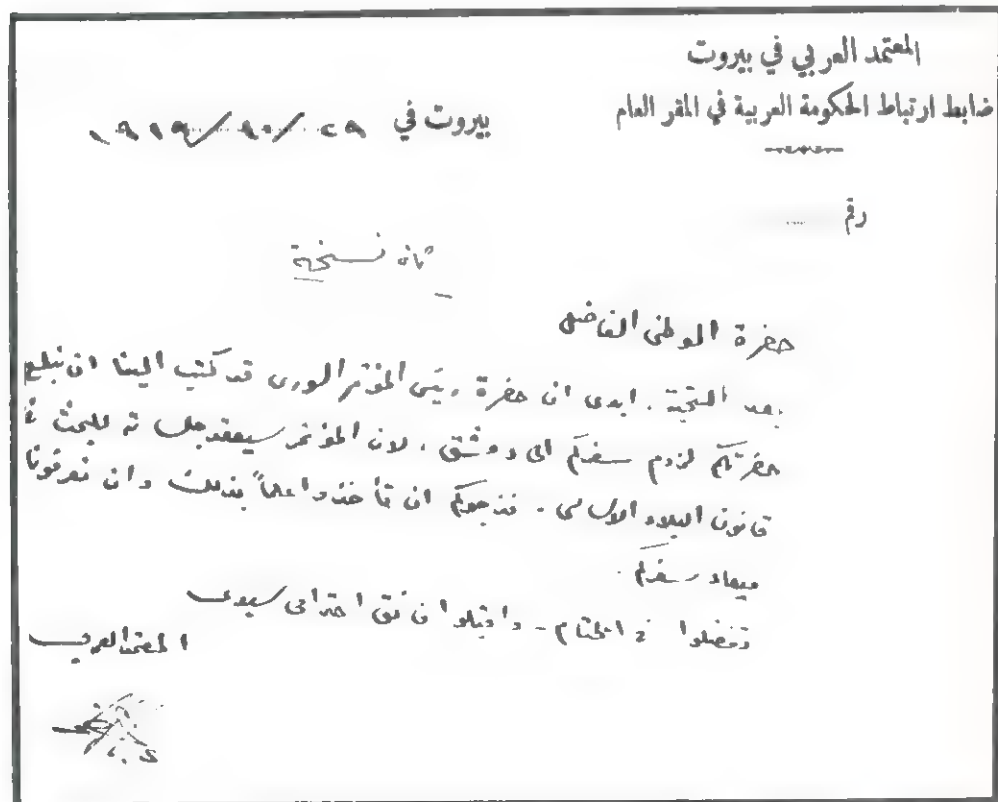 المعتمد العربي في بيروت
ضابط ارتباط الحكومة العربية في المقر العام
بيروت في ٢٩/١٠/١٩١٩
رقم
نسخة
حضرة الوطني الفاضل
بعد التحية. ابدي ان حضرة رئيس المؤتمر السوري قد كتب الينا ان نبلغ
حضرتكم لزوم سفركم الى دمشق، لان المؤتمر سيعقد للبحث في
قانون البلاد الاساسي. فنرجوكم ان تأخذوا علماً بذلك وان تعرفونا
ميعاد سفركم.
وتفضلوا في الختام - واقبلوا فائق احترامي سيدي
المعتمد العربي